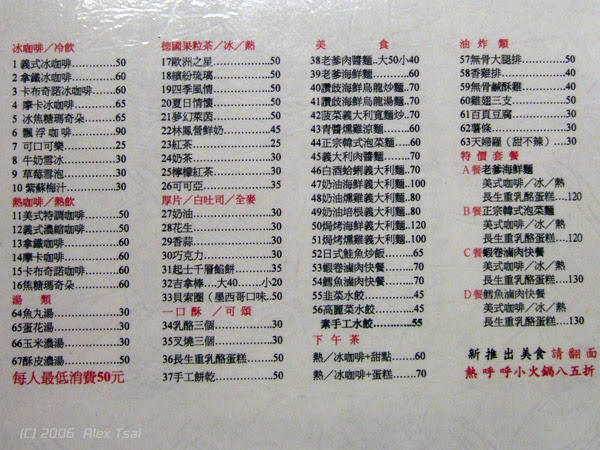 冰咖啡／冷飲
1義式冰咖啡..............50
2拿鐵冰咖啡..............60
3卡布奇諾冰咖啡........60
4 摩卡冰咖啡..............65
5冰焦糖瑪奇朵...........65
6 飄 浮 咖 啡..............90
7可口可樂..................25
8 牛奶雪冰..................30
9 草莓雪泡..................30
10 紫蘇梅汁................30
熱咖啡／熱飲
11美式特調咖啡...........50
12義式濃縮咖啡...........50
13拿鐵咖啡.................60
14摩卡咖啡.................60
15卡布奇諾咖啡...........60
16焦糖瑪奇朵..............60
湯 類
64魚丸湯....................30
65蛋花湯....................30
66玉米濃湯.................30
67酥皮濃湯.................50
每人最低消費50元
德國果粒茶／冰／熱
17歐洲之星..............50
18繽紛琉璃..............50
19四季風情..............50
20夏日情懷..............50
21夢幻萊茵..............50
22林鳳營鮮奶...........45
23紅茶....................25
24奶茶....................30
25檸檬紅茶..............30
26可可亞.................35
厚片／白吐司／全麥
27奶油....................30
28花生....................30
29香蒜....................30
30巧克力.................30
31起士千層餡餅........35
32吉拿棒.....大40.....小20
33貝索圈（墨西哥口味..50
一口酥 ／可 頌
34乳酪三個..............30
35叉燒三個..............30
36長生重乳酪蛋糕.....50
37手工餅乾..............50
美 食
38老爹肉醬麵..大50小40
39老爹海鮮麵..............70
40讚歧海鮮烏龍炒麵....70
41讚歧海鮮烏龍湯麵....70
42菠菜義大利寬麵炒..70
43青醬燻雞涼麵...........60
44正宗韓式泡菜麵........60
45義大利肉醬麵...........70
46白酒蛤蜊義大利麵....70
47奶油海鮮義大利麵.100
48奶油燻雞義大利麵...80
49奶油培根義大利麵...80
50焗烤海鮮義大利麵.100
51焗烤燻雞義大利麵..100
52日式鮭魚炒飯...........65
53蝦卷滷肉快餐...........70
54鱈魚滷肉快餐...........70
55韭菜水餃.................45
56高麗菜水餃..............45
素手工水餃...........55
下 午 茶
熱／冰咖啡+甜點......60
熱／冰咖啡+蛋糕......70
油 炸 類
57無骨大腿排..............50
58香雞排....................40
59無骨鹹酥雞..............40
60雞翅三支.................50
61百頁豆腐.................30
62薯條.......................30
63天婦羅（甜不辣）....30
特 價 套 餐
A餐老爹海鮮麵
美式咖啡／冰／熱
長生重乳酪蛋糕....120
B餐正宗韓式泡菜麵
美式咖啡／冰／熱
長生重乳酪蛋糕....120
C餐蝦卷滷肉快餐
美式咖啡／冰／熱
長生重乳酪蛋糕....130
D餐鱈魚滷肉快餐
美式咖啡／冰／熱
長生重乳酪蛋糕....130
新 推 出 美 食 請 翻 面
熱 呼 呼 小 火 鍋 八 五 折
(C) 2006 Alex Tsai